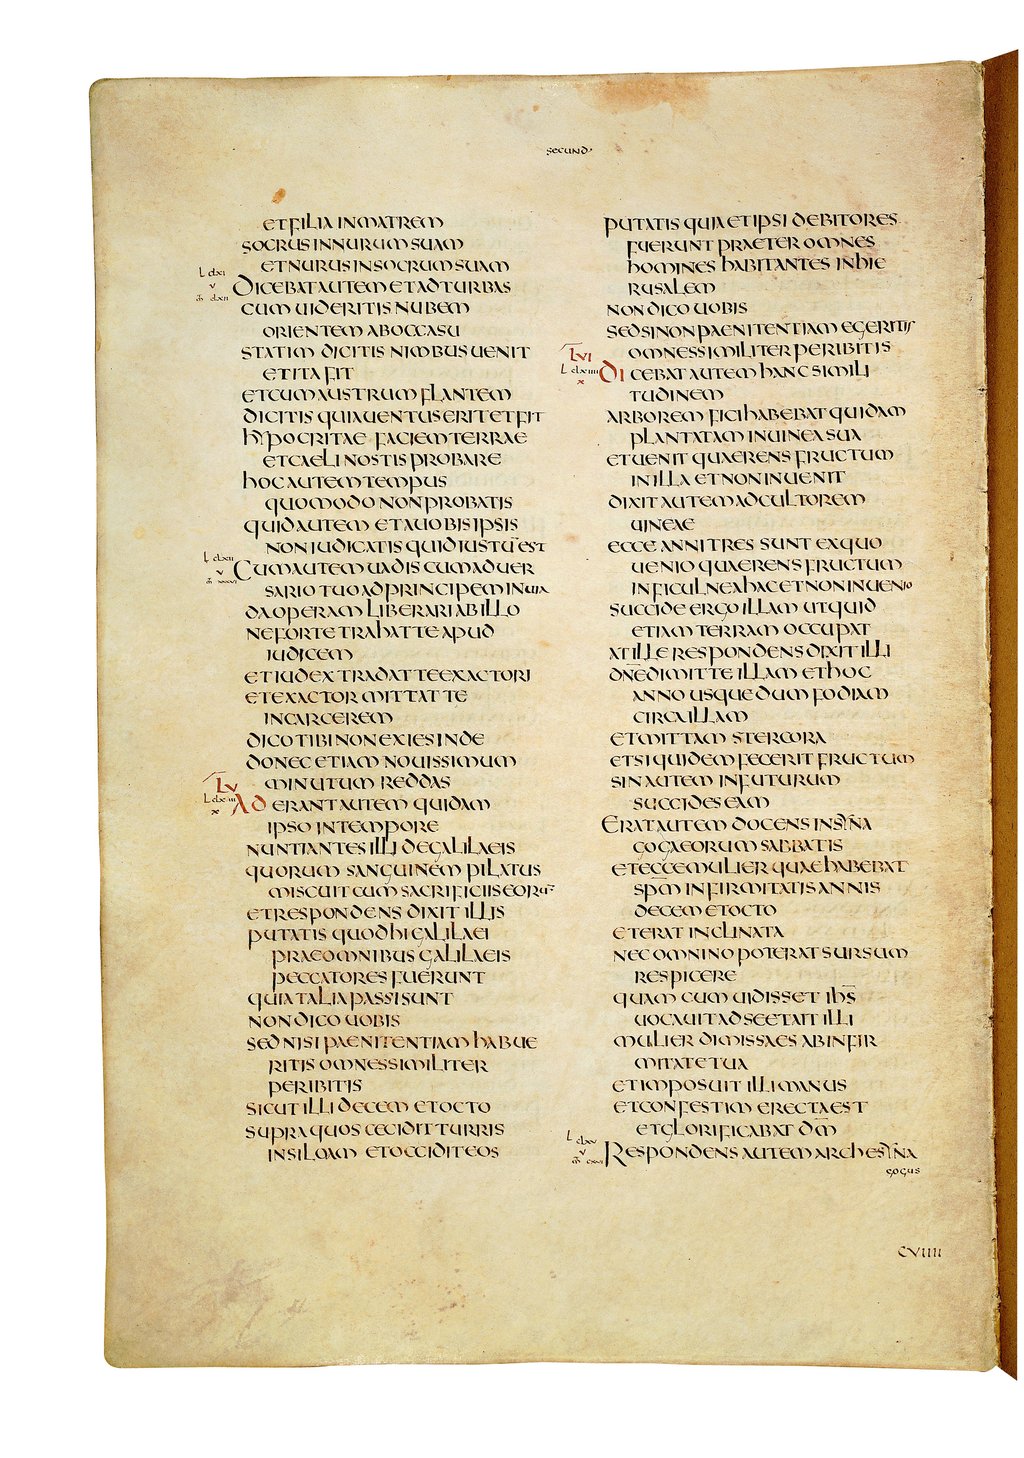 SECUND·
ET FILIA IN MATREM
SOCRUS IN NURUM SUAM
ET NURUS IN SOCRUM SUAM
L clxi
v
m clxii
DICEBAT AUTEM ET AD TURBAS
CUM UIDERITIS NUBEM
ORIENTEM AB OCCASU
STATIM DICITIS NIMBUS UENIT
ET ITA FIT
ET CUM AUSTRUM FLANTEM
DICITIS QUIA UENTUS ERIT ET FIT
HYPOCRITAE FACIEM TERRAE
ET CAELI NOSTIS PROBARE
HOC AUTEM TEMPUS
QUOMODO NON PROBATIS
QUID AUTEM ET A UOBIS IPSIS
NON IUDICATIS QUID IUSTŪ EST
L clxii
v
CUM AUTEM UADIS CUM ADUER
SARIO TUO AD PRINCIPEM IN UIA
DA OPERAM LIBERARI AB ILLO
NE FORTE TRAHAT TE APUD
IUDICEM
ET IUDEX TRADAT TE EXACTORI
ET EXACTOR MITTAT TE
IN CARCEREM
DICO TIBI NON EXIES INDE
DONEC ETIAM NOUISSIMUM
MINUTUM REDDAS
LV
L clxiii
x
AD ERANT AUTEM QUIDAM
IPSO IN TEMPORE
NUNTIANTES ILLI DE GALILAEIS
QUORUM SANGUINEM PILATUS
MISCUIT CUM SACRIFICIIS EORŪ
ET RESPONDENS DIXIT ILLIS
PUTATIS QUOD HI GALILAEI
PRAE OMNIBUS GALILAEIS
PECCATORES FUERUNT
QUIA TALIA PASSI SUNT
NON DICO UOBIS
SED NISI PAENITENTIAM HABUE
RITIS OMNES SIMILITER
PERIBITIS
SICUT ILLI DECEM ET OCTO
SUPRA QUOS CECIDIT TURRIS
IN SILOAM ET OCCIDIT EOS
PUTATIS QUIA ET IPSI DEBITORES
FUERUNT PRAETER OMNES
HOMINES HABITANTES IN HIE
RUSALEM
NON DICO UOBIS
SED SI NON PAENITENTIAM EGERITIS
OMNES SIMILITER PERIBITIS
LVI
L clxiiii
x
DICEBAT AUTEM HANC SIMILI
TUDINEM
ARBOREM FICI HABEBAT QUIDAM
PLANTATAM IN UINEA SUA
ET UENIT QUAERENS FRUCTUM
IN ILLA ET NON INUENIT
DIXIT AUTEM AD CULTOREM
UINEAE
ECCE ANNI TRES SUNT EX QUO
UENIO QUAERENS FRUCTUM
IN FICULNEA HAC ET NON INUENIO
SUCCIDE ERGO ILLAM UT QUID
ETIAM TERRAM OCCUPAT
AT ILLE RESPONDENS DIXIT ILLI
DN̄E DIMITTE ILLAM ET HOC
ANNO USQUE DUM FODIAM
CIRCA ILLAM
ET MITTAM STERCORA
ET SI QUIDEM FECERIT FRUCTUM
SIN AUTEM IN FUTURUM
SUCCIDES EAM
ERAT AUTEM DOCENS IN SYNA
GOGA EORUM SABBATIS
ET ECCE MULIER QUAE HABEBAT
SPM̄ INFIRMITATIS ANNIS
DECEM ET OCTO
ET ERAT INCLINATA
NEC OMNINO POTERAT SURSUM
RESPICERE
QUAM CUM UIDISSET IHS̄
UOCAUIT AD SE ET AIT ILLI
MULIER DIMISSA ES AB INFIR
MITATE TUA
ET IMPOSUIT ILLI MANUS
ET CONFESTIM ERECTA EST
ET GLORIFICABAT DM̄
L clxv
v
RESPONDENS AUTEM ARCHESYNA
GOGUS
CVIIII